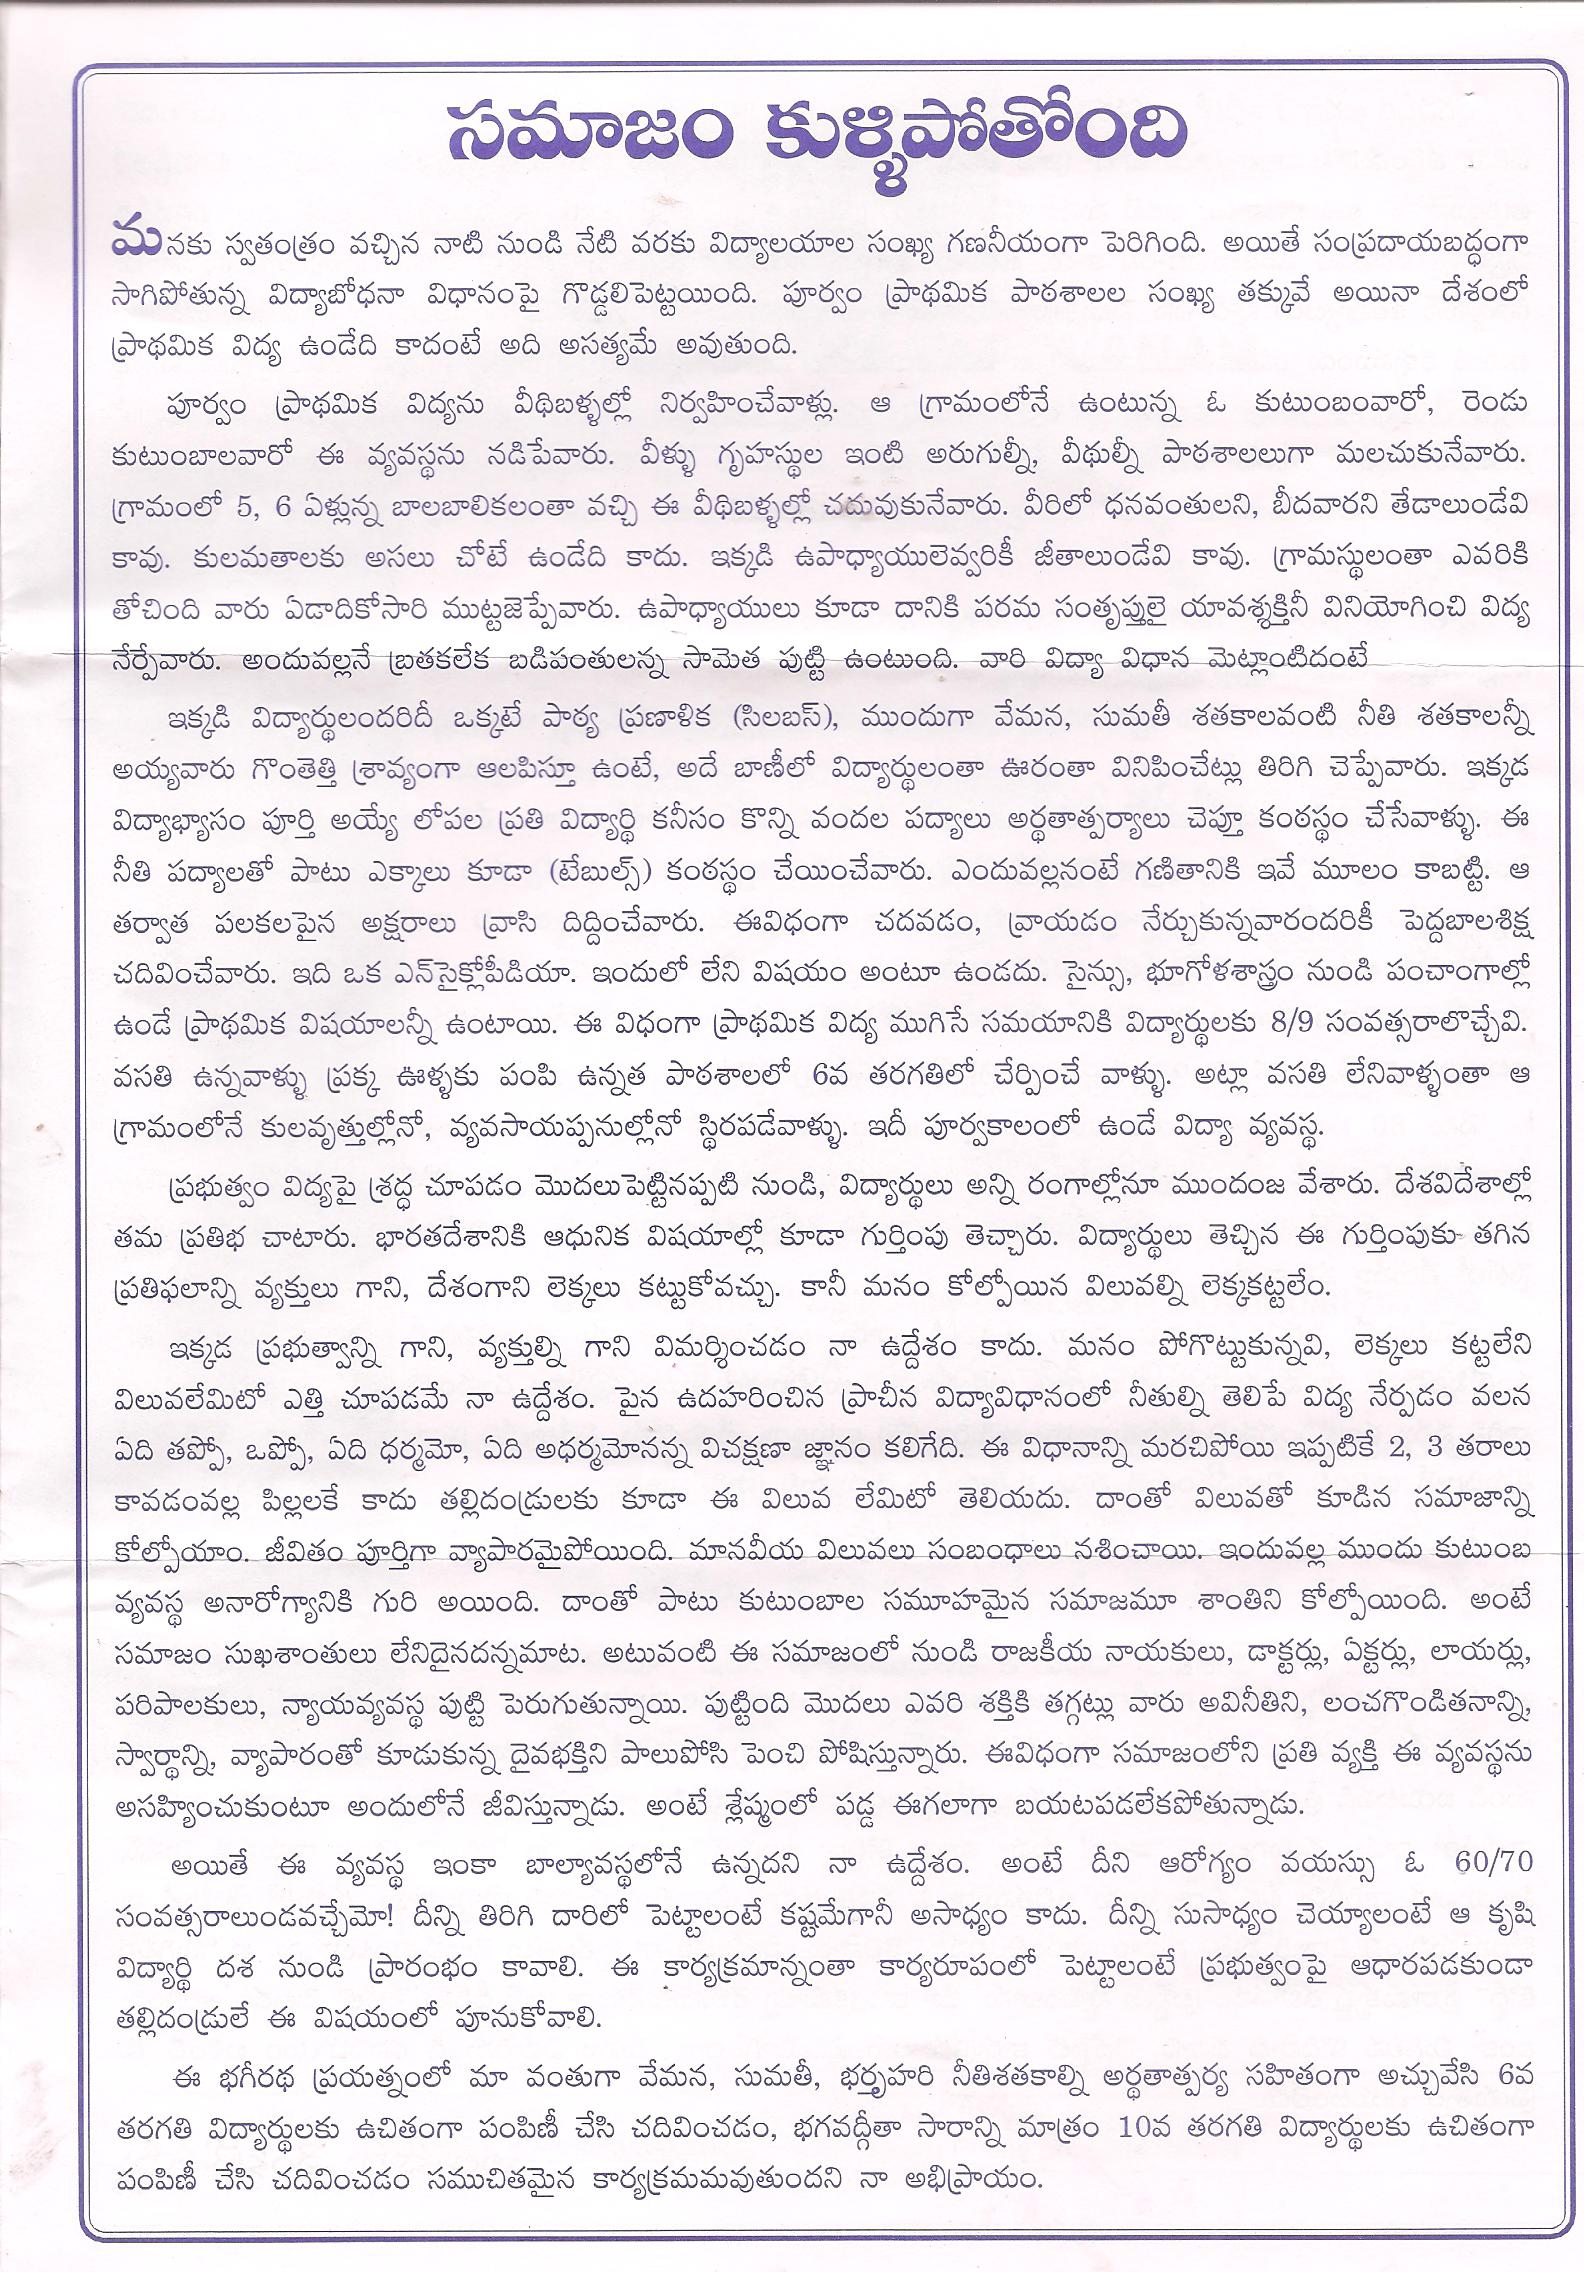 సమాజం కుళ్ళిపోతోంది
మనకు స్వతంత్రం వచ్చిన నాటి నుండి నేటి వరకు విద్యాలయాల సంఖ్య గణనీయంగా పెరిగింది. అయితే సంప్రదాయబద్ధంగా
సాగిపోతున్న విద్యాబోధనా విధానంపై గొడ్డలిపెట్టయింది. పూర్వం ప్రాథమిక పాఠశాలల సంఖ్య తక్కువే అయినా దేశంలో
ప్రాథమిక విద్య ఉండేది కాదంటే అది అసత్యమే అవుతుంది.
పూర్వం ప్రాథమిక విద్యను వీథిబళ్ళల్లో నిర్వహించేవాళ్లు. ఆ గ్రామంలోనే ఉంటున్న ఓ కుటుంబంవారో, రెండు
కుటుంబాలవారో ఈ వ్యవస్థను నడిపేవారు. వీళ్ళు గృహస్థుల ఇంటి అరుగుల్నీ, వీథుల్నీ పాఠశాలలుగా మలచుకునేవారు.
గ్రామంలో 5, 6 ఏళ్లున్న బాలబాలికలంతా వచ్చి ఈ వీథిబళ్ళల్లో చదువుకునేవారు. వీరిలో ధనవంతులని, బీదవారని తేడాలుండేవి
కావు. కులమతాలకు అసలు చోటే ఉండేది కాదు. ఇక్కడి ఉపాధ్యాయులెవ్వరికీ జీతాలుండేవి కావు. గ్రామస్థులంతా ఎవరికి
తోచింది వారు ఏడాదికోసారి ముట్టజెప్పేవారు. ఉపాధ్యాయులు కూడా దానికి పరమ సంతృప్తులై యావశ్శక్తినీ వినియోగించి విద్య
నేర్పేవారు. అందువల్లనే బ్రతకలేక బడిపంతులన్న సామెత పుట్టి ఉంటుంది. వారి విద్యా విధాన మెట్లాంటిదంటే
ఇక్కడి విద్యార్థులందరిదీ ఒక్కటే పాఠ్య ప్రణాళిక (సిలబస్), ముందుగా వేమన, సుమతీ శతకాలవంటి నీతి శతకాలన్నీ
అయ్యవారు గొంతెత్తి శ్రావ్యంగా ఆలపిస్తూ ఉంటే, అదే బాణీలో విద్యార్థులంతా ఊరంతా వినిపించేట్లు తిరిగి చెప్పేవారు. ఇక్కడ
విద్యాభ్యాసం పూర్తి అయ్యే లోపల ప్రతి విద్యార్థి కనీసం కొన్ని వందల పద్యాలు అర్థతాత్పర్యాలు చెప్తూ కంఠస్థం చేసేవాళ్ళు. ఈ
నీతి పద్యాలతో పాటు ఎక్కాలు కూడా (టేబుల్స్) కంఠస్థం చేయించేవారు. ఎందువల్లనంటే గణితానికి ఇవే మూలం కాబట్టి. ఆ
తర్వాత పలకలపైన అక్షరాలు వ్రాసి దిద్దించేవారు. ఈవిధంగా చదవడం, వ్రాయడం నేర్చుకున్నవారందరికీ పెద్దబాలశిక్ష
చదివించేవారు. ఇది ఒక ఎన్‌సైక్లోపీడియా. ఇందులో లేని విషయం అంటూ ఉండదు. సైన్సు, భూగోళశాస్త్రం నుండి పంచాంగాల్లో
ఉండే ప్రాథమిక విషయాలన్నీ ఉంటాయి. ఈ విధంగా ప్రాథమిక విద్య ముగిసే సమయానికి విద్యార్థులకు 8/9 సంవత్సరాలొచ్చేవి.
వసతి ఉన్నవాళ్ళు ప్రక్క ఊళ్ళకు పంపి ఉన్నత పాఠశాలలో 6వ తరగతిలో చేర్పించే వాళ్ళు. అట్లా వసతి లేనివాళ్ళంతా ఆ
గ్రామంలోనే కులవృత్తుల్లోనో, వ్యవసాయప్పనుల్లోనో స్థిరపడేవాళ్ళు. ఇదీ పూర్వకాలంలో ఉండే విద్యా వ్యవస్థ.
ప్రభుత్వం విద్యపై శ్రద్ధ చూపడం మొదలుపెట్టినప్పటి నుండి, విద్యార్థులు అన్ని రంగాల్లోనూ ముందంజ వేశారు. దేశవిదేశాల్లో
తమ ప్రతిభ చాటారు. భారతదేశానికి ఆధునిక విషయాల్లో కూడా గుర్తింపు తెచ్చారు. విద్యార్థులు తెచ్చిన ఈ గుర్తింపుకు తగిన
ప్రతిఫలాన్ని వ్యక్తులు గాని, దేశంగాని లెక్కలు కట్టుకోవచ్చు. కానీ మనం కోల్పోయిన విలువల్ని లెక్కకట్టలేం.
ఇక్కడ ప్రభుత్వాన్ని గాని, వ్యక్తుల్ని గాని విమర్శించడం నా ఉద్దేశం కాదు. మనం పోగొట్టుకున్నవి, లెక్కలు కట్టలేని
విలువలేమిటో ఎత్తి చూపడమే నా ఉద్దేశం. పైన ఉదహరించిన ప్రాచీన విద్యావిధానంలో నీతుల్ని తెలిపే విద్య నేర్పడం వలన
ఏది తప్పో, ఒప్పో, ఏది ధర్మమో, ఏది అధర్మమోనన్న విచక్షణా జ్ఞానం కలిగేది. ఈ విధానాన్ని మరచిపోయి ఇప్పటికే 2, 3 తరాలు
కావడంవల్ల పిల్లలకే కాదు తల్లిదండ్రులకు కూడా ఈ విలువ లేమిటో తెలియదు. దాంతో విలువతో కూడిన సమాజాన్ని
కోల్పోయాం. జీవితం పూర్తిగా వ్యాపారమైపోయింది. మానవీయ విలువలు సంబంధాలు నశించాయి. ఇందువల్ల ముందు కుటుంబ
వ్యవస్థ అనారోగ్యానికి గురి అయింది. దాంతో పాటు కుటుంబాల సమూహమైన సమాజమూ శాంతిని కోల్పోయింది. అంటే
సమాజం సుఖశాంతులు లేనిదైనదన్నమాట. అటువంటి ఈ సమాజంలో నుండి రాజకీయ నాయకులు, డాక్టర్లు, ఏక్టర్లు, లాయర్లు,
పరిపాలకులు, న్యాయవ్యవస్థ పుట్టి పెరుగుతున్నాయి. పుట్టింది మొదలు ఎవరి శక్తికి తగ్గట్లు వారు అవినీతిని, లంచగొండితనాన్ని,
స్వార్థాన్ని, వ్యాపారంతో కూడుకున్న దైవభక్తిని పాలుపోసి పెంచి పోషిస్తున్నారు. ఈవిధంగా సమాజంలోని ప్రతి వ్యక్తి ఈ వ్యవస్థను
అసహ్యించుకుంటూ అందులోనే జీవిస్తున్నాడు. అంటే శ్లేష్మంలో పడ్డ ఈగలాగా బయటపడలేకపోతున్నాడు.
అయితే ఈ వ్యవస్థ ఇంకా బాల్యావస్థలోనే ఉన్నదని నా ఉద్దేశం. అంటే దీని ఆరోగ్యం వయస్సు ఓ 60/70
సంవత్సరాలుండవచ్చేమో! దీన్ని తిరిగి దారిలో పెట్టాలంటే కష్టమేగానీ అసాధ్యం కాదు. దీన్ని సుసాధ్యం చెయ్యాలంటే ఆ కృషి
విద్యార్థి దశ నుండి ప్రారంభం కావాలి. ఈ కార్యక్రమాన్నంతా కార్యరూపంలో పెట్టాలంటే ప్రభుత్వంపై ఆధారపడకుండా
తల్లిదండ్రులే ఈ విషయంలో పూనుకోవాలి.
ఈ భగీరథ ప్రయత్నంలో మా వంతుగా వేమన, సుమతీ, భర్తృహరి నీతిశతకాల్ని అర్థతాత్పర్య సహితంగా అచ్చువేసి 6వ
తరగతి విద్యార్థులకు ఉచితంగా పంపిణీ చేసి చదివించడం, భగవద్గీతా సారాన్ని మాత్రం 10వ తరగతి విద్యార్థులకు ఉచితంగా
పంపిణీ చేసి చదివించడం సముచితమైన కార్యక్రమమవుతుందని నా అభిప్రాయం.